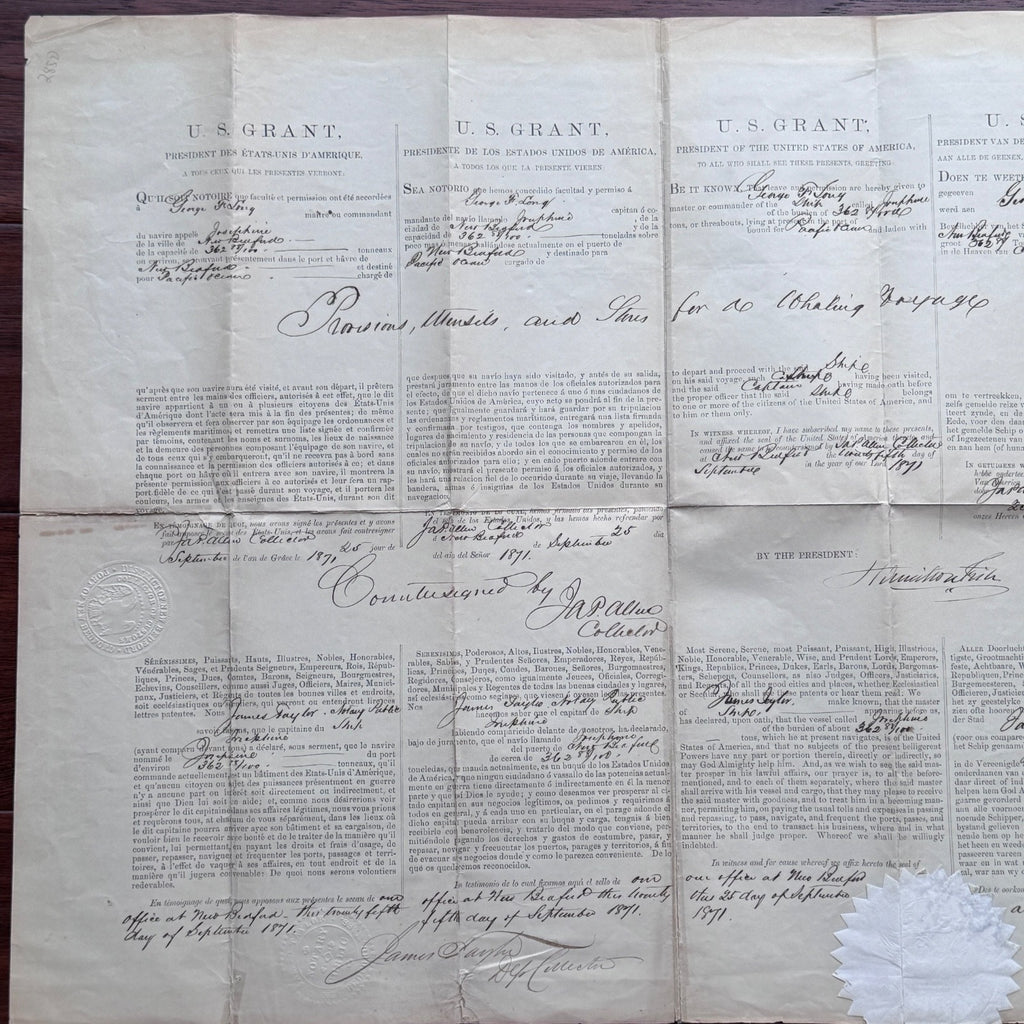 2850
U. S. GRANT,
PRESIDENT DES ÉTATS-UNIS D'AMERIQUE,
A TOUS CEUX QUI LES PRESENTES VERRONT:
QU'IL SOIT NOTOIRE que faculté et permission ont été accordées
à George F. Long
maître ou commandant
du navire appelé Josephine
de la ville de New Bedford
de la capacité de 362 tonneaux
ou environ, se trouvant présentement dans le port et hâvre de
New Bedford et destiné
pour Pacific Ocean chargé de
U. S. GRANT,
PRESIDENTE DE LOS ESTADOS UNIDOS DE AMÉRICA,
Á TODOS LOS QUE LA PRESENTE VIEREN.
SEA NOTORIO que hemos concedido facultad y permiso á
George F. Long
mandante del navio llamado Josephine capitan ó co-
ciudad de New Bedford, de la
capacidad de 362 toneladas sobre
poco mas ó menos, hallándose actualmente en el puerto de
New Bedford y destinado para
Pacific Ocean cargado de
U. S. GRANT,
PRESIDENT OF THE UNITED STATES OF AMERICA,
TO ALL WHO SHALL SEE THESE PRESENTS, GREETING:
BE IT KNOWN, That leave and permission are hereby given to
George F. Long
master or commander of the Ship called Josephine
of the burden of 362
tons, or threabouts, lying at present in the port of
bound for Pacific Ocean and laden with
U. S.
PRESIDENT VAN DE
AAN ALLE DE GEENEN,
DOEN TE WEET
gegeeven
Geo
werd aen
New Bedford
groot 362
in de Haven van
Provisions, Utensils, and Stores for a Whaling Voyage
qu'après que son navire aura été visité, et avant son départ, il prêtera
serment entre les mains des officiers autorisés à cet effet, que le dit
navire appartient à un ou à plusieurs citoyens des Etats-Unis
d'Amérique dont l'acte sera mis à la fin des présentes; de même
qu'il observera et fera observer par son équipage les ordonnances et
les règlements maritimes, et remettra une liste signée et confirmée
par témoins, contenant les noms et surnoms, les lieux de naissance
et la demeure des personnes composant l'équipage de son navire, et
de tous ceux qui s'y embarqueront, qu'il ne recevra pas à bord sans
la connaissance et la permission des officiers autorisés à ce; et dans
chaque port ou hâvre où il entrera avec son navire, il montrera la
présente permission aux officiers à ce autorisés et leur fera un rap-
port fidèle de ce qui s'est passé durant son voyage, et il portera les
couleurs, les armes et les enseignes des Etats-Unis, durant son dit
voyage.
que despues que su navío haya sido visitado, y ántes de su salida,
prestará juramento entre las manos de los oficiales autorizados para
el efecto, de que el dicho navío pertenece á uno ó mas ciudadanos de
los Estados Unidos de América, cuyo acto se pondrá al fin de la pre-
sente; que igualmente guardará y hará guardar por su tripulacion
las órdenes y reglamentos maritimos, entregará una lista firmada
y confirmada por testigos, que contenga los nombres y apellidos,
lugares de nacimiento y residencia de las personas que compongan la
tripulacion de su navío, y de todos los que se embarcaren en él, los
cuales no admitirá abordo sin el conocimiento y permiso de
los oficiales autorizados; y en cada puerto adonde entrare con su
navío mostrará el presente permiso á los oficiales autorizados, y
les hará una relacion fiel de lo ocurrido durante su viaje, llevando las
banderas, armas é insignias de los Estados Unidos durante dicha
navegacion.
to depart and proceed with the said Ship
on his said voyage, such Ship having been visited,
and the said Captain Ship having made oath before
the proper officer that the said Ship belongs
to one or more of the citizens of the United States of America, and
to him or them only.
IN WITNESS WHEREOF, I have subscribed my name to these presents,
and affixed the seal of the United States of America thereto, and caused
the same to be countersigned by Ja P. Allen Collector
at New Bedford the twenty fifth day of
September in the year of our Lord 1871
om te vertrekken,
EN TÉMOIGNAGE DE QUOI, nous avons signé les présentes et y avons
fait apposer le sceau des Etats-Unis, et les avons fait contresigner
par Ja P. Allen Collector
le 25 jour de
September de l'an de Grâce le 1871
EN TESTIMONIO DE LO CUAL, firmamos las presentes, poniendo
el sello de los Estados Unidos, y las hemos hecho refrendar por
Ja P. Allen Collector
á New Bedford 25 dia
de September
del año del Señor 1871.
BY THE PRESIDENT:
Hamilton Fish
Countersigned by Ja P. Allen
Collector
SÉRÉNISSIMES, Puissants, Hauts, Illustres, Nobles, Honorables,
Vénérables, Sages, et Prudents Seigneurs, Empereurs, Rois, Répub-
liques, Princes, Ducs, Comtes, Barons, Seigneurs, Bourgmestres,
Echevins, Conseillers, comme aussi Juges, Officiers, Maires, Munici-
paux, Justiciers, et Régents de toutes les bonnes villes et endroits,
soit ecclésiastiques ou séculiers, qui verront ou entendront lire ces
lettres patentes. Nous James Taylor Notary Public
savoir faisons, que le capitaine du Ship
Josephine
(ayant comparu devant nous) a déclaré, sous serment, que le navire
nommé le Josephine du port
d'environ 362 tonneaux, qu'il
commande actuellement, est un bâtiment des Etats-Unis d'Amérique,
et qu'aucun citoyen ou sujet des puissances présentement en guerre
n'y a aucune part ou intérêt soit directement ou indirectement, et
ainsi que Dieu lui soit en aide; et, comme nous désirerions voir
prospérer le dit capitaine dans ses affaires légitimes, nous vous prions
et requérons tous et chacun de vous séparément, dans les lieux où
le dit capitaine pourra arriver avec son bâtiment et sa cargaison, de
vouloir bien le recevoir avec bonté et de le traiter de la manière qu'il
convient, lui permettant, en payant les droits et frais d'usage, de
passer, repasser, naviguer et frequenter les ports, passages et terri-
toires, à l'effet de vaquer à ses affaires, en tout endroit et de la
manière qu'il jugera convenable: De quoi nous serons volontiers
redevables.
En témoignage de quoi nous apposons aux présentes le sceau de our
office at New Bedford this twenty fifth
day of September 1871.
SERENISIMOS, Poderosos, Altos, Ilustres, Nobles, Honorables, Vene-
rables, Sabios, y Prudentes Señores, Emperadores, Reyes, Repúb-
licas, Principes, Duques, Condes, Barones, Señores, Burgmaestres,
Esquevinos, Consejeros, como igualmente Jueces, Oficiales, Corregi-
dores, Municipales, y Regentes de todas las buenas ciudades y lugares,
Nos James Taylor Notary Public
hacemos saber que el capitan de Ship
Josephine
habiendo comparicido delante de nosotros, ha declarado,
bajo de juramento, que el navío llamado Josephine
del puerto de New Bedford
de cerca de 362
toneladas, que manda actualmente, es un buque de los Estados Unidos
de América, y que ningun ciudadano ó vasallo de las potencias actualmente
en guerra tiene directamente ó indirectamente en él la menor
parte y que asi Dios le ayude; y como deseamos ver prosperar al dicho
capitan en sus negocios legítimos, os pedimos y requirimos á
todos en general, y á cada uno en particular, en el parage adonde el
dicho capitan pueda arribar con su buque y carga, tengais á bien
recibirlo con benevolencia, y tratarlo del modo que conviene, per-
mitiéndole pagando los derechos y gastos de costumbre, pasar, y
repasar, navegar y frecuentar los puertos, parages y territorios, á fin
de evacuar sus negocios donde y como le parezca conveniente. De lo
que quedaremos reconocidos.
En testimonio de lo cual fixamos aquí el sello de our
office at New Bedford this twenty
fifth day of September 1871.
James Taylor
Dep Collector
Most Serene, Serene, most Puissant, Puissant, High, Illustrious,
Noble, Honorable, Venerable, Wise, and Prudent Lords, Emperors,
Kings, Republics, Princes, Dukes, Earls, Barons, Lords, Bergomas-
ters, Schepens, Counsellors, as also Judges, Officers, Justiciars, and
Regents of all the good cities and places, whether Ecclesiastical
or Secular, who shall see the patents or hear them read: We
James Taylor make known, that the master
of Ship appearing before us,
has declared, upon oath, that the vessel called the Josephine
of the burden of about 362
tons, which he at present navigates, is of the United
States of America, and that no subjects of the present belligerent
Powers have any part or portion therein, directly or indirectly, so
may God Almighty help him. And, as we wish to see the said mas-
ter prosper in his lawful affairs, our prayer is, to all the before
mentioned, and to each of them separately, where the said master
shall arrive with his vessel and cargo, that they may please to receive
the said master with goodness, and to treat him in a becoming man-
ner, permitting him, on paying the usual tolls and expenses in passing
and repassing, to pass, navigate, and frequent the ports, passes, and
territories, to the end to transact his business, where and in what
manner he shall judge proper. Whereof we shall be willingly
indebted.
In witness and for cause whereof we affix hereto the seal of
our office at New Bedford
this 25 day of September
1871.